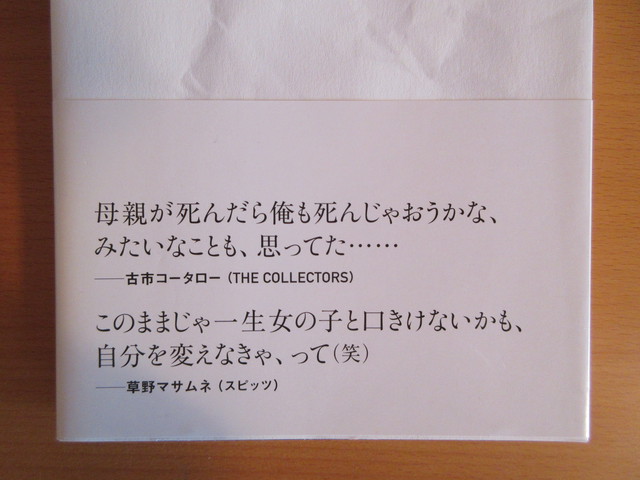 母親が死んだら俺も死んじゃおうかな、
みたいなことも、思ってた……
──古市コータロー（THE COLLECTORS）
このままじゃ一生女の子と口きけないかも、
自分を変えなきゃ、って（笑）
──草野マサムネ（スピッツ）